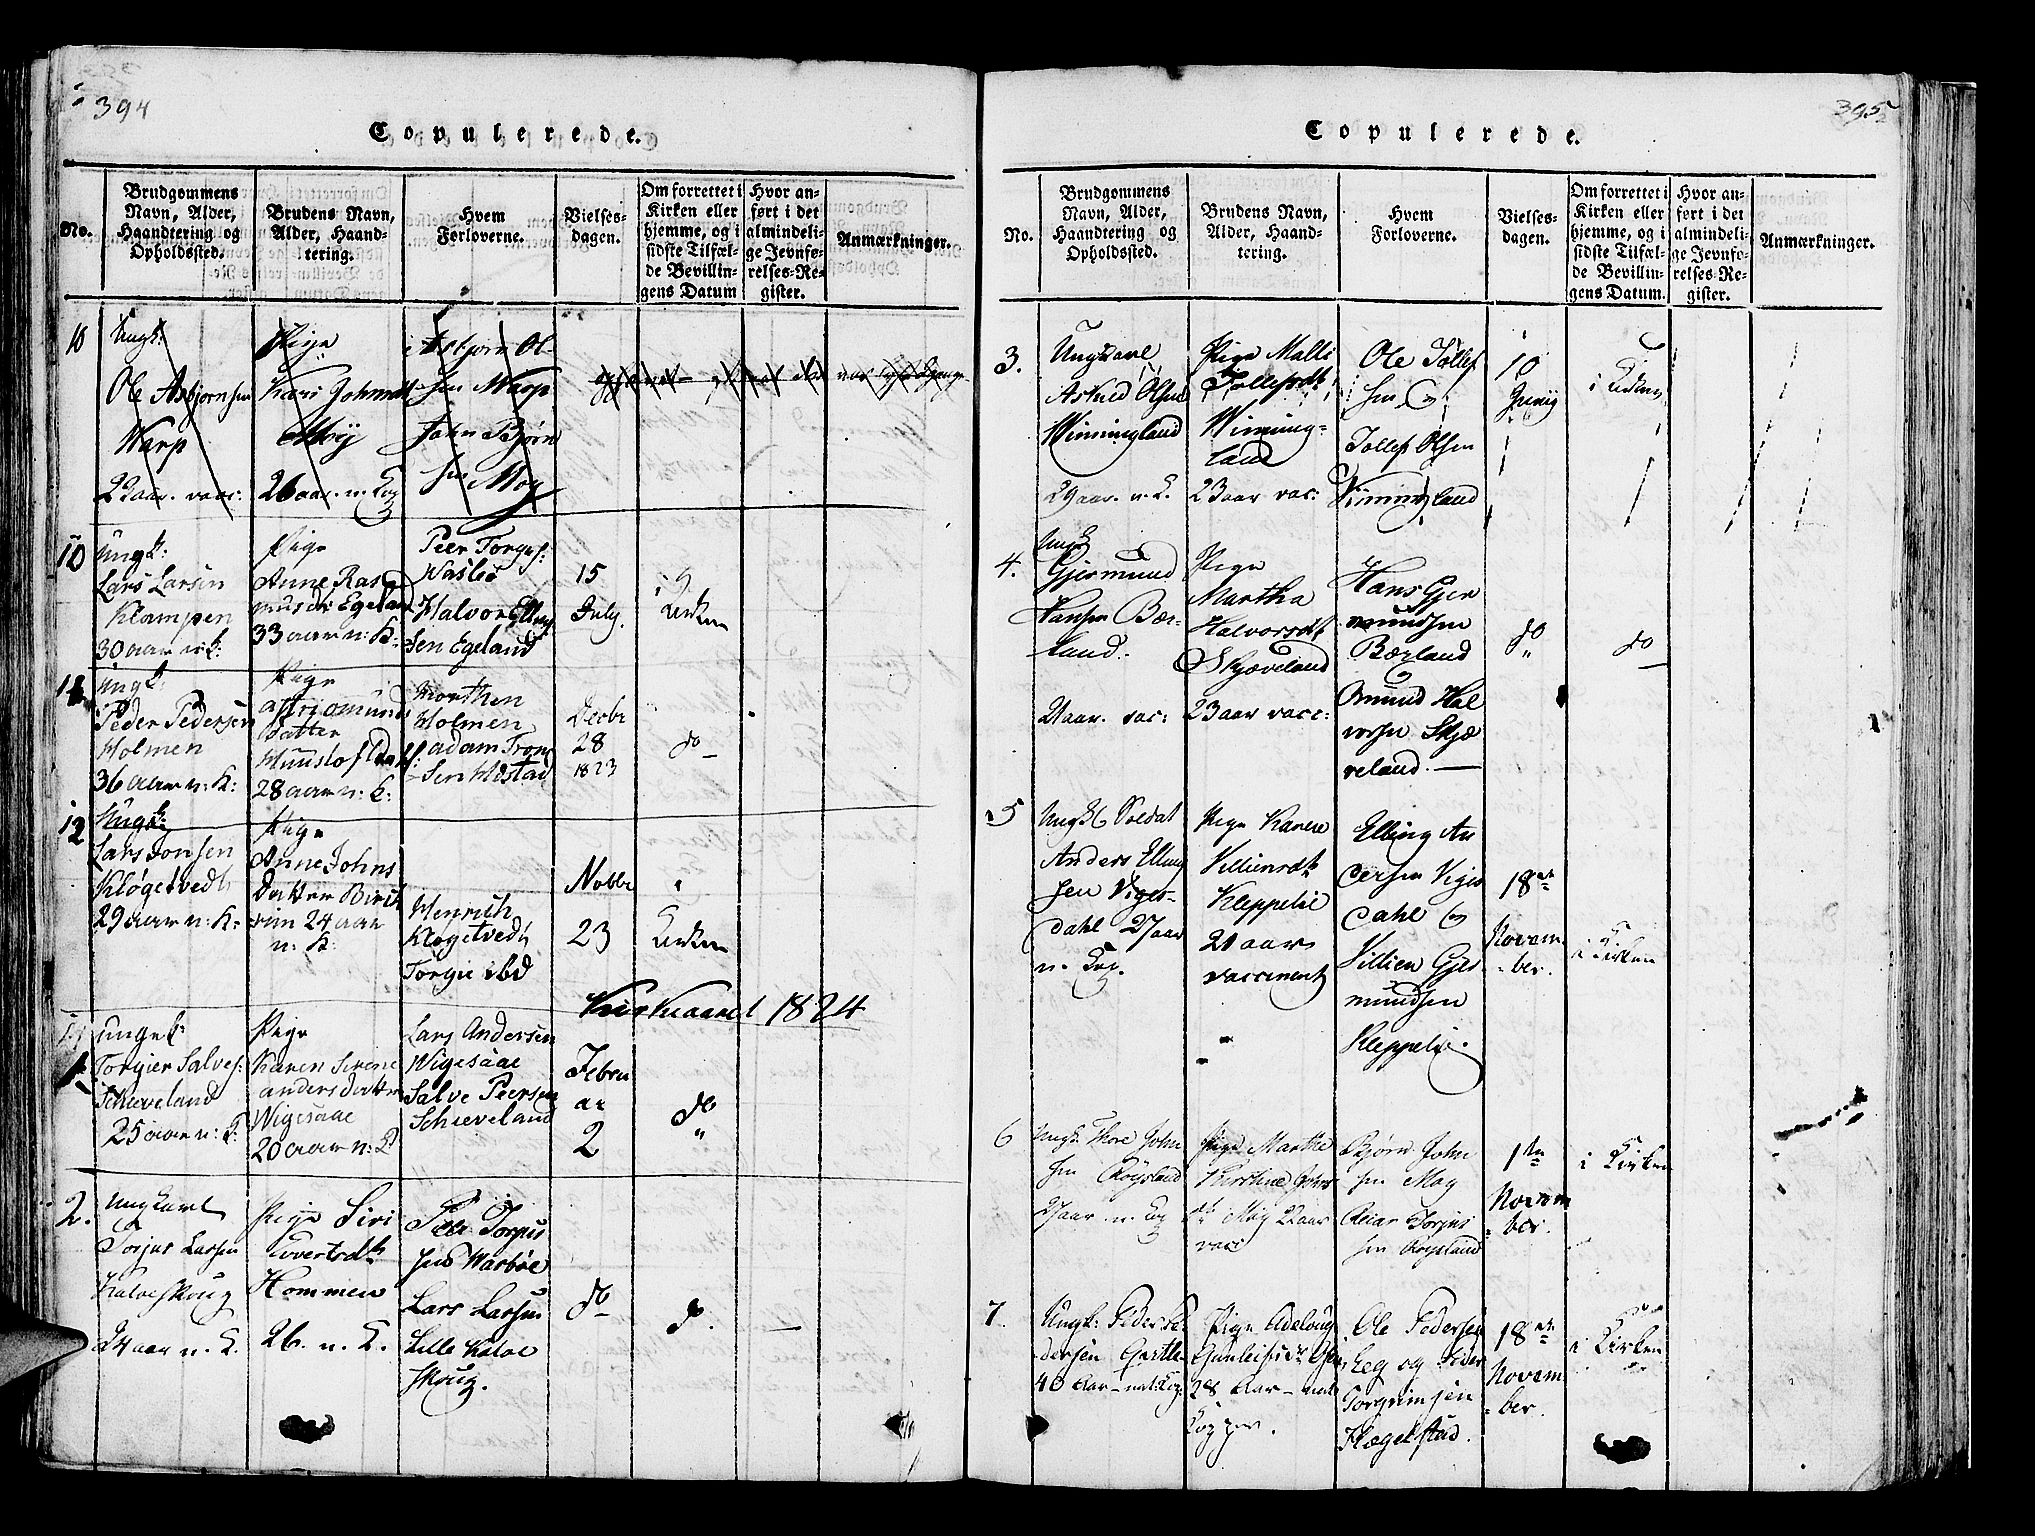 394
Copulerede.
No.
Brudgommens
Navn, Alder,
Haandtering og
Opholdssted.
Brudens Navn,
Alder, Haand-
tering.
Hvem
Forloverne.
Vielses-
dagen.
Om forrettet i
Kirken eller
hjemme, og i
sidste Tilfæl-
de Bevillin-
gens Datum
Hvor an-
ført i det
almindeli-
ge Jevnfø-
relses-Re-
gister.
Anmærkninger.
10
Ungk:
Ole Asbjornsen
Warp
22 aar. vacc:
Pige
Kari Johnsdt
Moy
26 aar. n. Kop
Asbjorn Ol-
sen Warp
John Bjørn
sen Moy
10
Ungk:
Lars Larsen
Klampen
30 aar n: k:
Pige
Anne Ras
musdr Egeland
33 aar n: K:
Peer Torges:
Wasbø
Halvor Elling
sen Egeland
15
July.
i
Kirken
11
Ungk:
Peder Pedersen
Holmen
36 aar n: K:
Pige
Datter
28 aar n: k:
Morthen
Holmen
adam Tron
sen Hestad
Decbr
28
1823
do
12
Ungk:
Lars Jonsen
Kløgetvedt
29 aar n: K:
Pige
Anne Johns
Datter Birk
rim 24 aar
n: K:
Henrich
Kløgetvedt
Torgie ibd
Novbr
23
i
Kirken
Kirkeaaret 1824
1
ungek:
Torgier Salves:
Schieveland
25 aar n: k:
Pige
Karen Sirene
andersdatter
Wigesaae
20 aar n: k
Lars Andersen
Wigesaae
Salve Peersen
Schieveland
Febru
ar
2
do
2.
Ungkarl
Torjus Larsen
Kalveskoug
24 aar n. K.
Pige Siri
Tovertsdt
Hommen
26. n. K.
Peer Torjus
sen Wasbøe
Lars Larsen
Lille Kalve
skoug.
do
do.
395
Copulerede.
No.
Brudgommens
Navn, Alder,
Haandtering og
Opholdssted.
Brudens Navn,
Alder, Haand-
tering.
Hvem
Forloverne.
Vielses-
dagen.
Om forrettet i
Kirken eller
hjemme, og i
sidste Tilfæl-
de Bevillin-
gens Datum.
Hvor an-
ført i det
almindeli-
ge Jevnfø-
relses-Re-
gister.
Anmærkninger.
3.
Ungkarl
Asbud Olsen
Winningland
29 aar. n. K.
Pige Malli
Tollefsdt
Winning-
land
23 aar vac:
Ole Tollef
sen og
Tollef Olsen
Winningland
10
Juny
i Kirken
4.
Ungk
Gjermund
Hansen Bær-
land.
21 aar. vac:
Pige
Martha
Halvorsdt
Skjæveland
23 aar vacc:
Hans Gjer
mundsen
Bærland
Omund Hal
vorsen Skjæ
veland.
do
do
5
Ungk Soldat
Anders Elling
sen Viges-
dahl 27 aar
n. Kop.
Pige Karen
Villumsdt
Kleppelie
21 aar
vaccineret
Elling An
dersen Viges
dahl og
Villien Gjer
mundsen
Kleppelie.
18de
Novem
ber.
i Kirken
6
Ungk Thore John
sen Røysland
27 aar n. Kop
Pige Marthe
Kirstine Johns
dt Moy 22 aar
vacc
Bjørn John
sen Moy
Reiar Torjus
sen Røysland
1ste
Novem
ber.
i Kirken
7.
Ungk: Peder Pe-
dersen Gartle
40 Aar - nat: Kop:
Pige Adeloug
Gunleifsdt
28 Aar - nat
Kopper.
Ole Pedersen
Eeg og Peder
Torgrimsen
Hægelstad.
18de
Novem
ber.
i Kirken